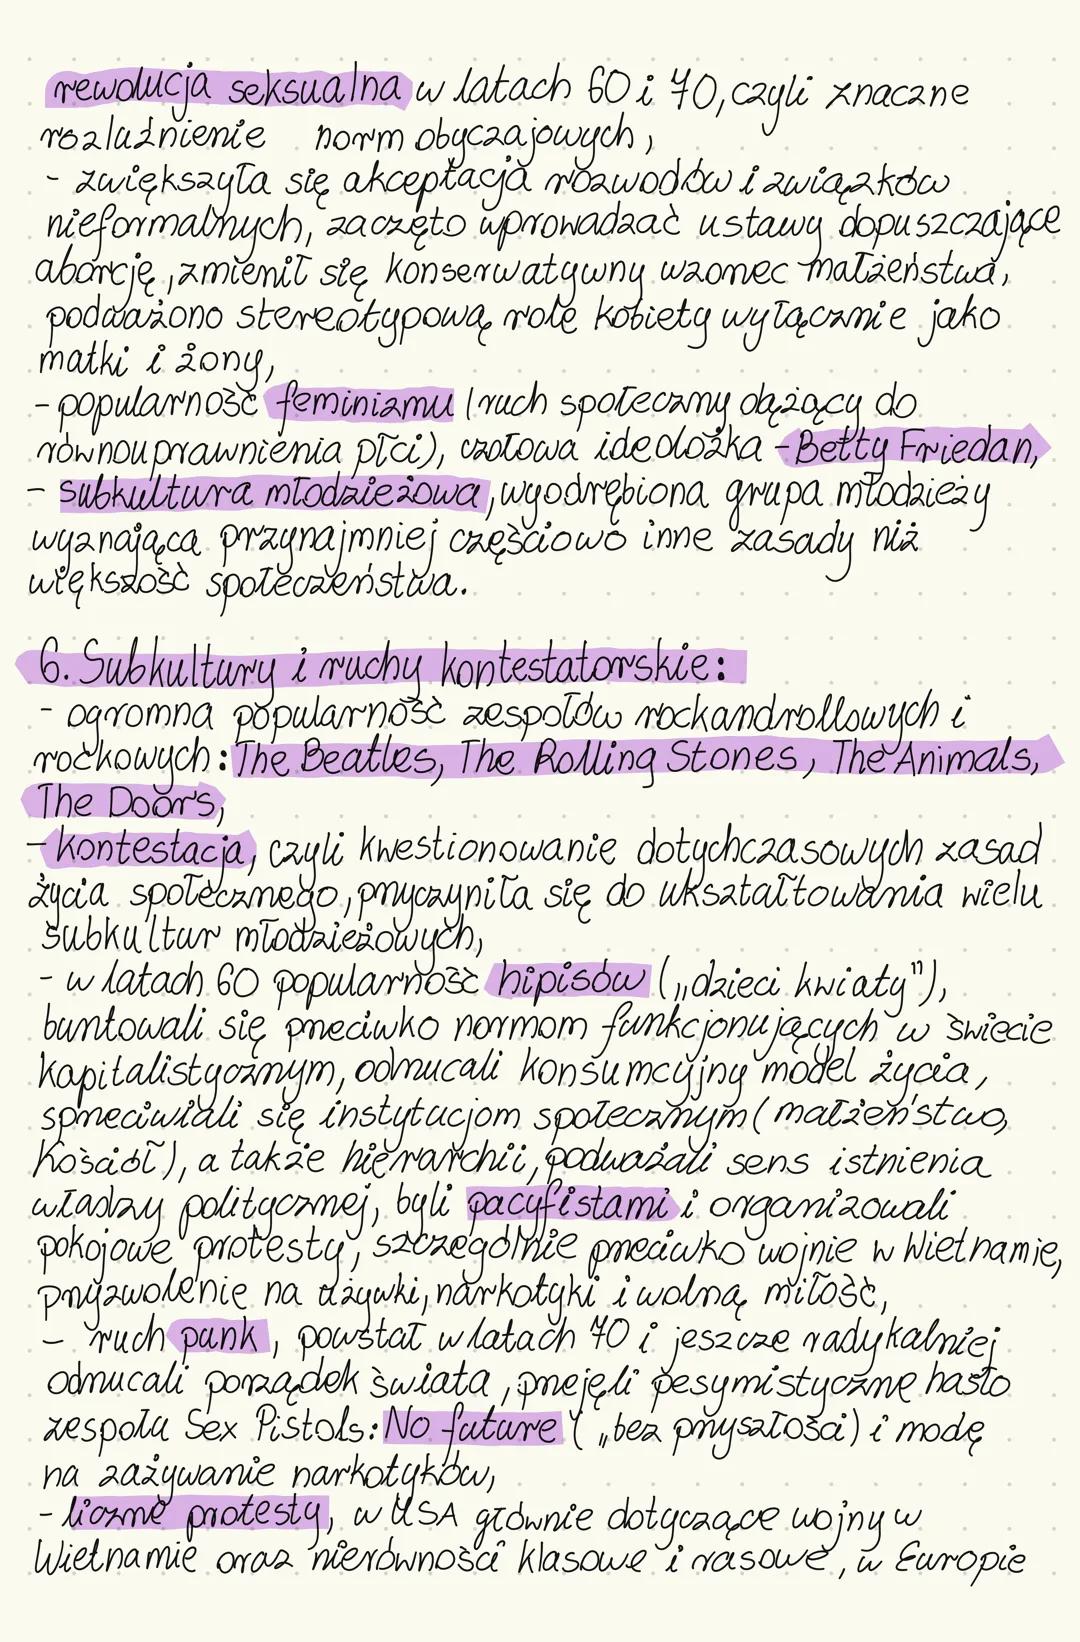 rewolucja seksualna w latach 60 i 70, czyli znaczne
rozluźnienie norm obyczajowych,
- zwiększyła się akceptacja rozwodów i związków
nieformalnych, zaczęto wprowadzać ustawy dopuszczające
aborcję, zmienił się konserwatywny wzorzec małżeństwa,
podważono stereotypową rolę kobiety wyłącznie jako
matki i żony,
- popularność feminizmu (ruch społeczny dążący do
równouprawnienia płci), czołowa ideolożka - Betty Friedan,
- subkultura młodzieżowa, wyodrębiona grupa młodzieży
wyznająca przynajmniej częściowo inne zasady niż
większość społeczeństwa.
6. Subkultury i ruchy kontestatorskie:
- ogromna popularność zespołów rockandrollowych i
rockowych: The Beatles, The Rolling Stones, The Animals,
The Doors,
- kontestacja, czyli kwestionowanie dotychczasowych zasad
życia społecznego, przyczyniła się do ukształtowania wielu
subkultur młodzieżowych,
- w latach 60 popularność hipisów („dzieci kwiaty"),
buntowali się przeciwko normom funkcjonujących w świecie
kapitalistycznym, odrzucali konsumcyjny model życia,
sprzeciwiali się instytucjom społecznym (małżeństwo,
Kościół), a także hierarchii, podważali sens istnienia
władzy politycznej, byli pacyfistami i organizowali
pokojowe protesty, szczególnie przeciwko wojnie w Wietnamie,
przyzwolenie na używki, narkotyki i wolną miłość,
- ruch punk, powstał w latach 70 i jeszcze radykalniej
odrzucali porządek świata, przejęli pesymistyczne hasło
zespołu Sex Pistols: No future („bez przyszłości) i modę
na zażywanie narkotyków,
- liczne protesty, w USA głównie dotyczące wojny w
Wietnamie oraz nierówności klasowe i rasowe, w Europie